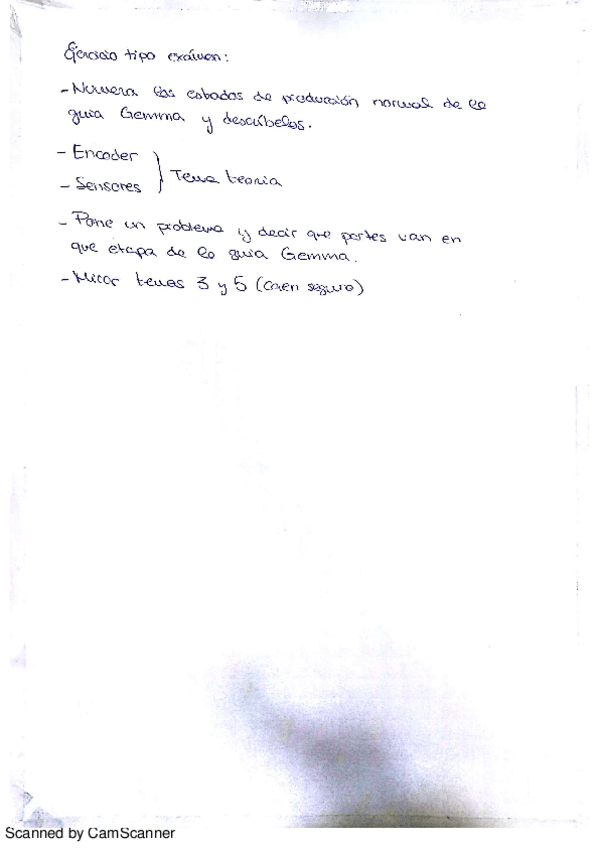 Ejercicio tipo exámen:
- Numera los estados de producción normal de la
guia Gemma y descríbelos.
- Encoder
- Sensores } Tema teoria
- Pone un problema y decir que partes van en
que etapa de la guia Gemma.
- Mirar temas 3 y 5 (caen seguro)
Scanned by CamScanner